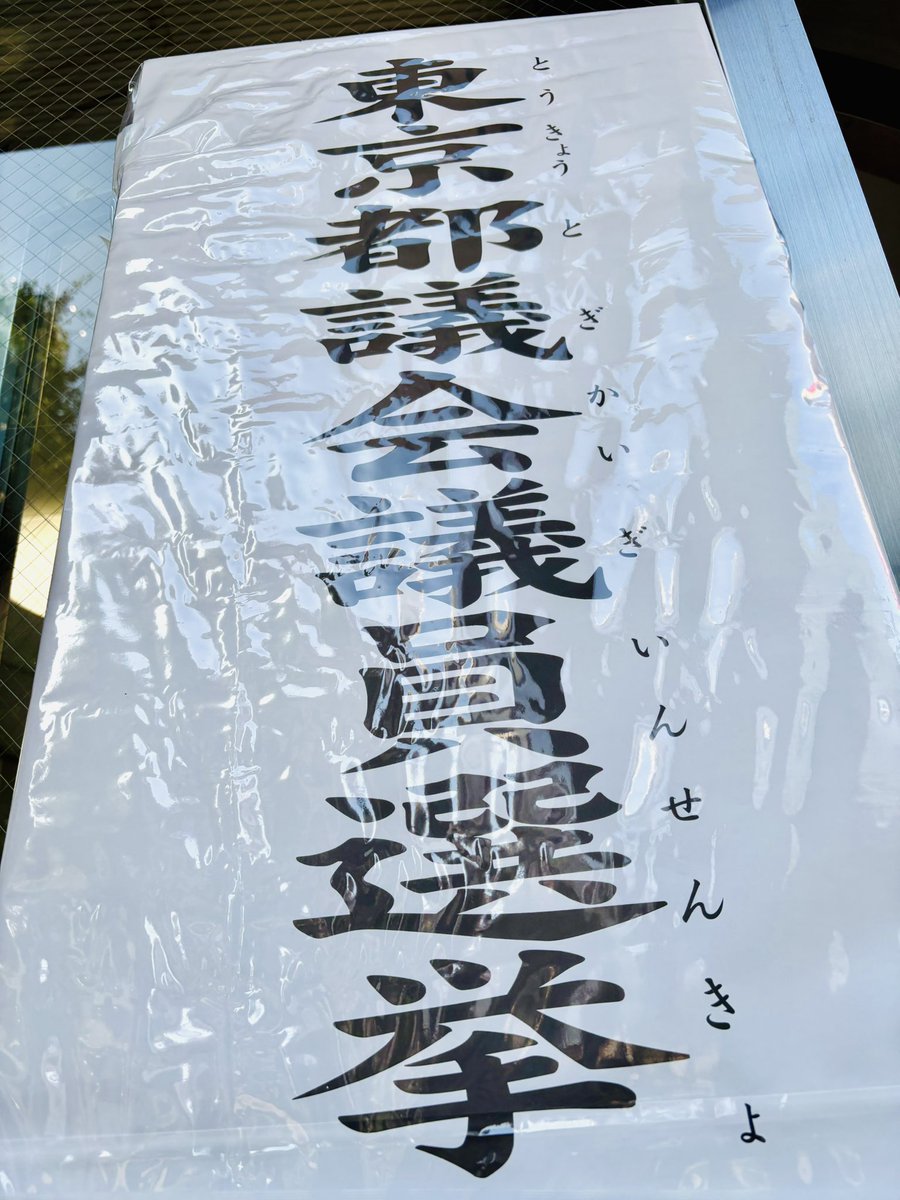 東京都議会議員選挙
とうきょうとぎかいぎいんせんきよ